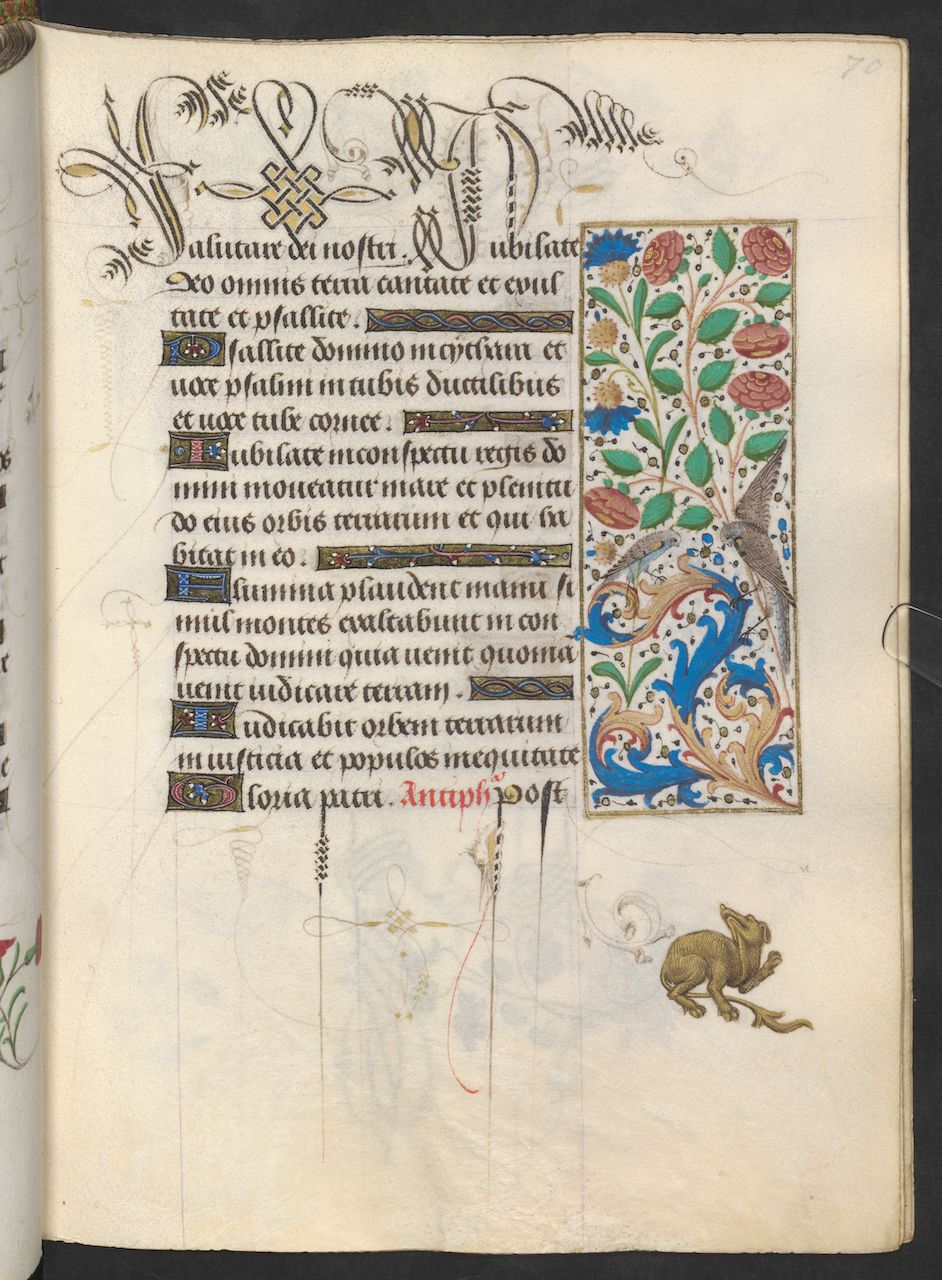 70
Salutare dei nostri. Iubilate
deo omnis terra cantate et exul
tate et psallite.
Psallite domino in cythara et
uoce psalmi in tubis ductilibus
et uoce tube cornee.
Iubilate in conspectu regis do
mini moueatur mare et plenitu
do eius orbis terrarum et qui ha
bitat in eo.
Flumina plaudent manu si
mul montes exaltabunt in con
spectu domini quia uenit quonia
uenit iudicare terram.
Iudicabit orbem terrarum
in iusticia et populos in equitate
Gloria patri. Antiph Post